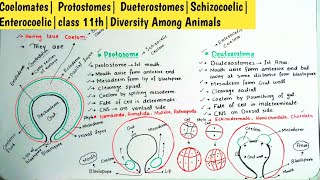 Coelomates| Protostomes| Dueterostomes|Schizocoelic|
Enterocoelic|class 11th|Diversity Among Animals
Having true Coelom
They are
Protostome
Protostomes → 1st mouth
Mouth arise from anterior end
Mesoderm form lip of blastopore
Cleavage spiral
Coelom by splitting mesoderm
Fate of cell is determinate
CNS on ventral side
Annelida, Mollusca
Deuterostome
Mouth arise from anterior end but
away at some distance from blastopore
Cleavage radial
Coelom by Pouching of gut
Fate of cell in indeterminate
CNS on Dorsal side
Echinodermata, Hemichordata, Chordata
Coelom
Mesoderm
Gut wall
Blastopore
Mouth
Lip
Coelom
Gut wall
Mesoderm
Blastopore